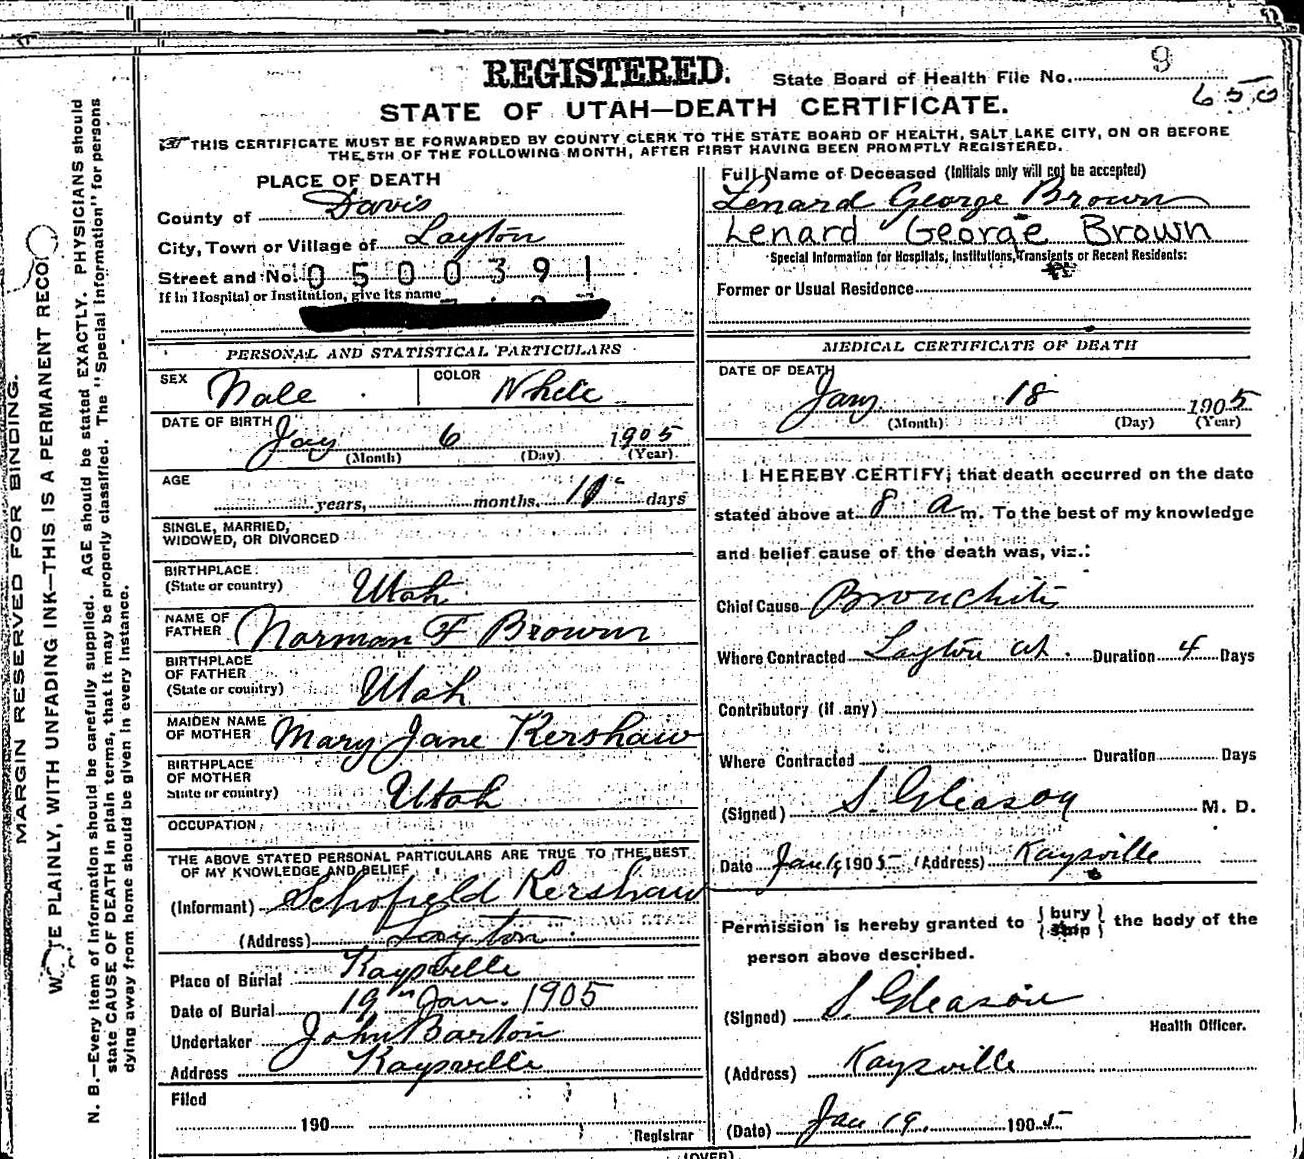 REGISTERED.
State Board of Health File No. 9
650
STATE OF UTAH—DEATH CERTIFICATE.
THIS CERTIFICATE MUST BE FORWARDED BY COUNTY CLERK TO THE STATE BOARD OF HEALTH, SALT LAKE CITY, ON OR BEFORE
THE 5TH OF THE FOLLOWING MONTH, AFTER FIRST HAVING BEEN PROMPTLY REGISTERED.
PLACE OF DEATH
County of Davis
City, Town or Village of Layton
Street and No. 0500391
If in Hospital or Institution, give its name
PERSONAL AND STATISTICAL PARTICULARS
SEX Male COLOR White
DATE OF BIRTH Jany 6 1905
(Month) (Day) (Year)
AGE years, months, days
SINGLE, MARRIED,
WIDOWED, OR DIVORCED
BIRTHPLACE
(State or country) Utah
NAME OF
FATHER Norman F Brown
BIRTHPLACE
OF FATHER
(State or country) Utah
MAIDEN NAME
OF MOTHER Mary Jane Kershaw
BIRTHPLACE
OF MOTHER
State or country) Utah
OCCUPATION
THE ABOVE STATED PERSONAL PARTICULARS ARE TRUE TO THE BEST
OF MY KNOWLEDGE AND BELIEF
(Informant) Schofield Kershaw
(Address) Layton
Place of Burial Kaysville
Date of Burial 19th Jan. 1905
Undertaker John Barton
Address Kaysville
Filed
190
Registrar
Full Name of Deceased (Initials only will not be accepted)
Lenard George Brown
Lenard George Brown
Special Information for Hospitals, Institutions, Transients or Recent Residents:
Former or Usual Residence
MEDICAL CERTIFICATE OF DEATH
DATE OF DEATH
Jany 18 1905
(Month) (Day) (Year)
I HEREBY CERTIFY, that death occurred on the date
stated above at 8 a m. To the best of my knowledge
and belief cause of the death was, viz.:
Chief Cause Bronchitis
Where Contracted Layton Ut. Duration 4 Days
Contributory (if any)
Where Contracted Duration Days
(Signed) S. Gleason M. D.
Date Jan 1905 (Address) Kaysville
Permission is hereby granted to {bury ship} the body of the
person above described.
(Signed) S. Gleason
Health Officer.
(Address) Kaysville
(Date) Jan 19. 1905
(OVER)
MARGIN RESERVED FOR BINDING.
WRITE PLAINLY, WITH UNFADING INK—THIS IS A PERMANENT RECO
N. B.—Every item of information should be carefully supplied. AGE should be stated EXACTLY. PHYSICIANS should
state CAUSE OF DEATH in plain terms, that it may be properly classified. The "Special Information" for persons
dying away from home should be given in every instance.